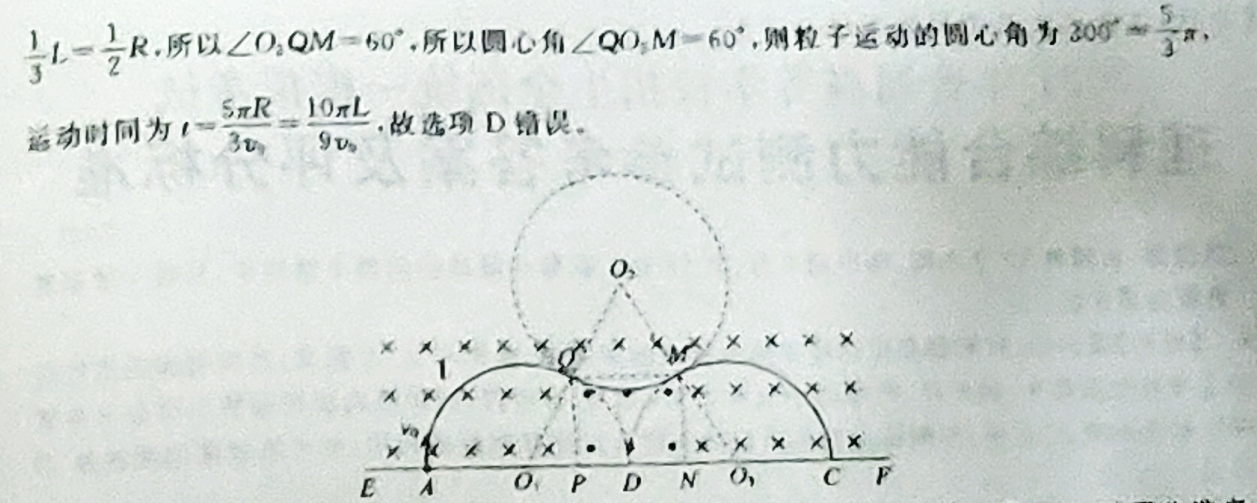 1/3 L = 1/2 R,所以∠O₂QM=60°,所以圆心角∠QO₂M=60°,则粒子运动的圆心角为300°=5/3 π,
运动时间为 t = 5πR/3v₀ = 10πL/9v₀,故选项 D 错误。
O₂
Q M
I
v₀
E A O₁ P D N O₃ C F